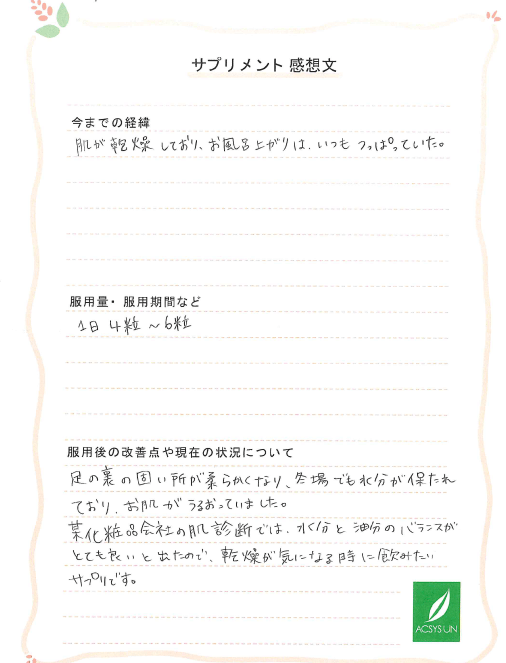 サプリメント 感想文
今までの経緯
肌が乾燥しており、お風呂上がりは、いつもつっぱっていた。
服用量・服用期間など
1日 4粒 ~ 6粒
服用後の改善点や現在の状況について
足の裏の固い所が柔らかくなり、冬場でも水分が保たれ
ており、お肌がうるおっていました。
某化粧品会社の肌診断では、水分と油分のバランスが
とても良いと出たので、乾燥が気になる時に飲みたい
サプリです。
ACSYSUN